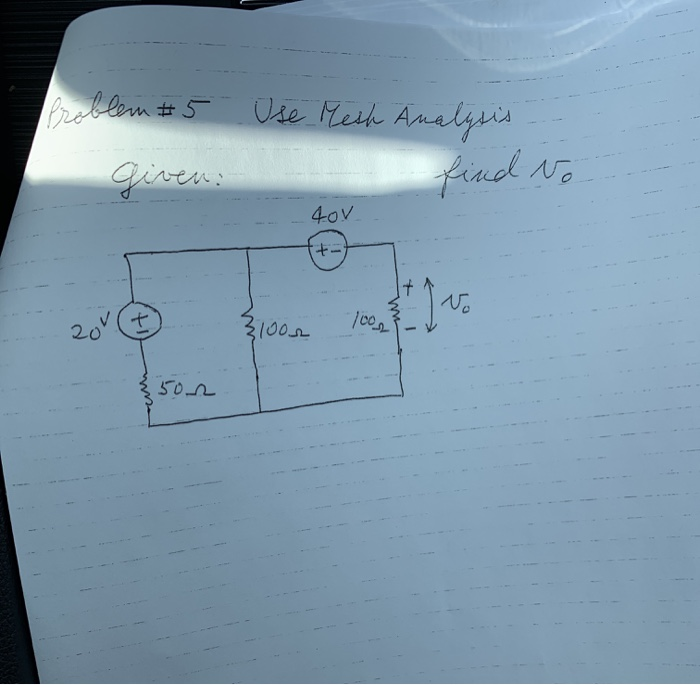 Problem # 5 Use Mesh Analysis
Given: find v₀
40V
+ -
20V + -
100Ω
100Ω
+ -
v₀
50Ω